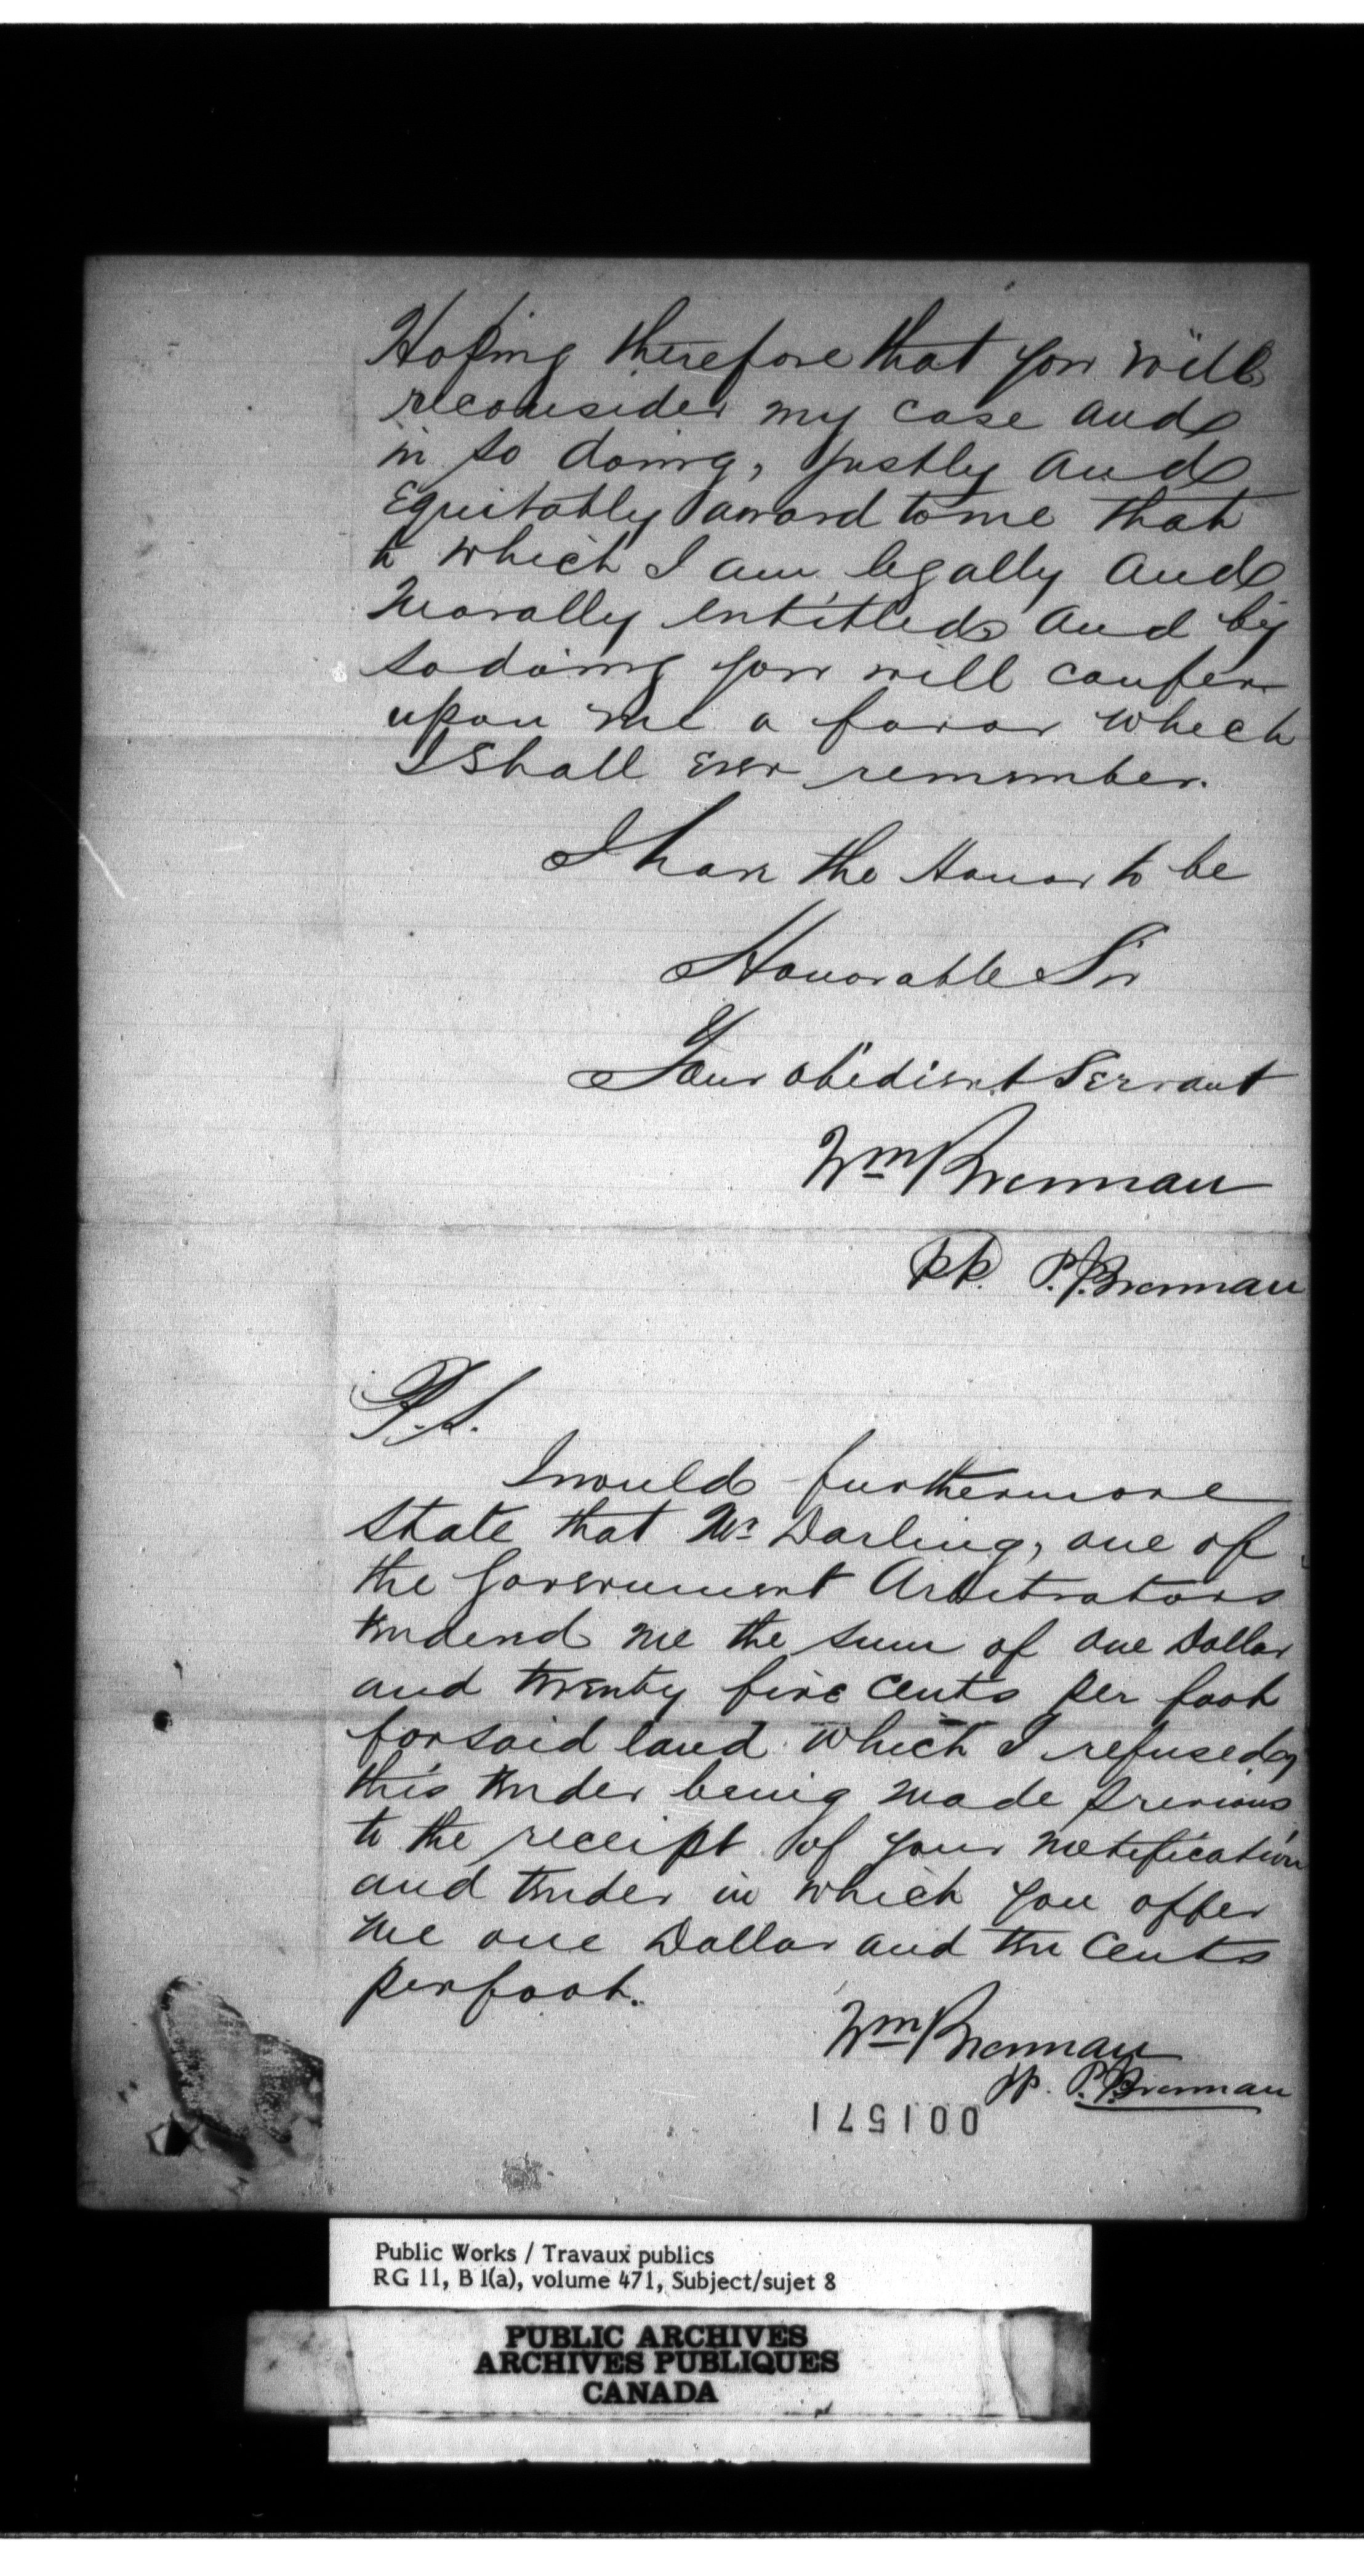 Hoping therefore that you will
reconsider my case and
in so doing, justly and
Equitably award to me that
to which I am legally and
Morally entitled and by
so doing you will confer
upon me a favor which
I shall ever remember.
I have the Honor to be
Honorable Sir
Your obedient Servant
Wm Brennan
pp. P.J. Brennan
P.S.
I would furthermore
state that Mr Darling, one of
the Government Arbitrators
tendered me the sum of one Dollar
and twenty five cents per foot
for said land which I refused,
this tender being made previous
to the receipt of your notification
and tender in which you offer
me one Dollar and ten cents
per foot.
Wm Brennan
pp. P.J. Brennan
001571
Public Works / Travaux publics
RG 11, B 1(a), volume 471, Subject/sujet 8
PUBLIC ARCHIVES
ARCHIVES PUBLIQUES
CANADA